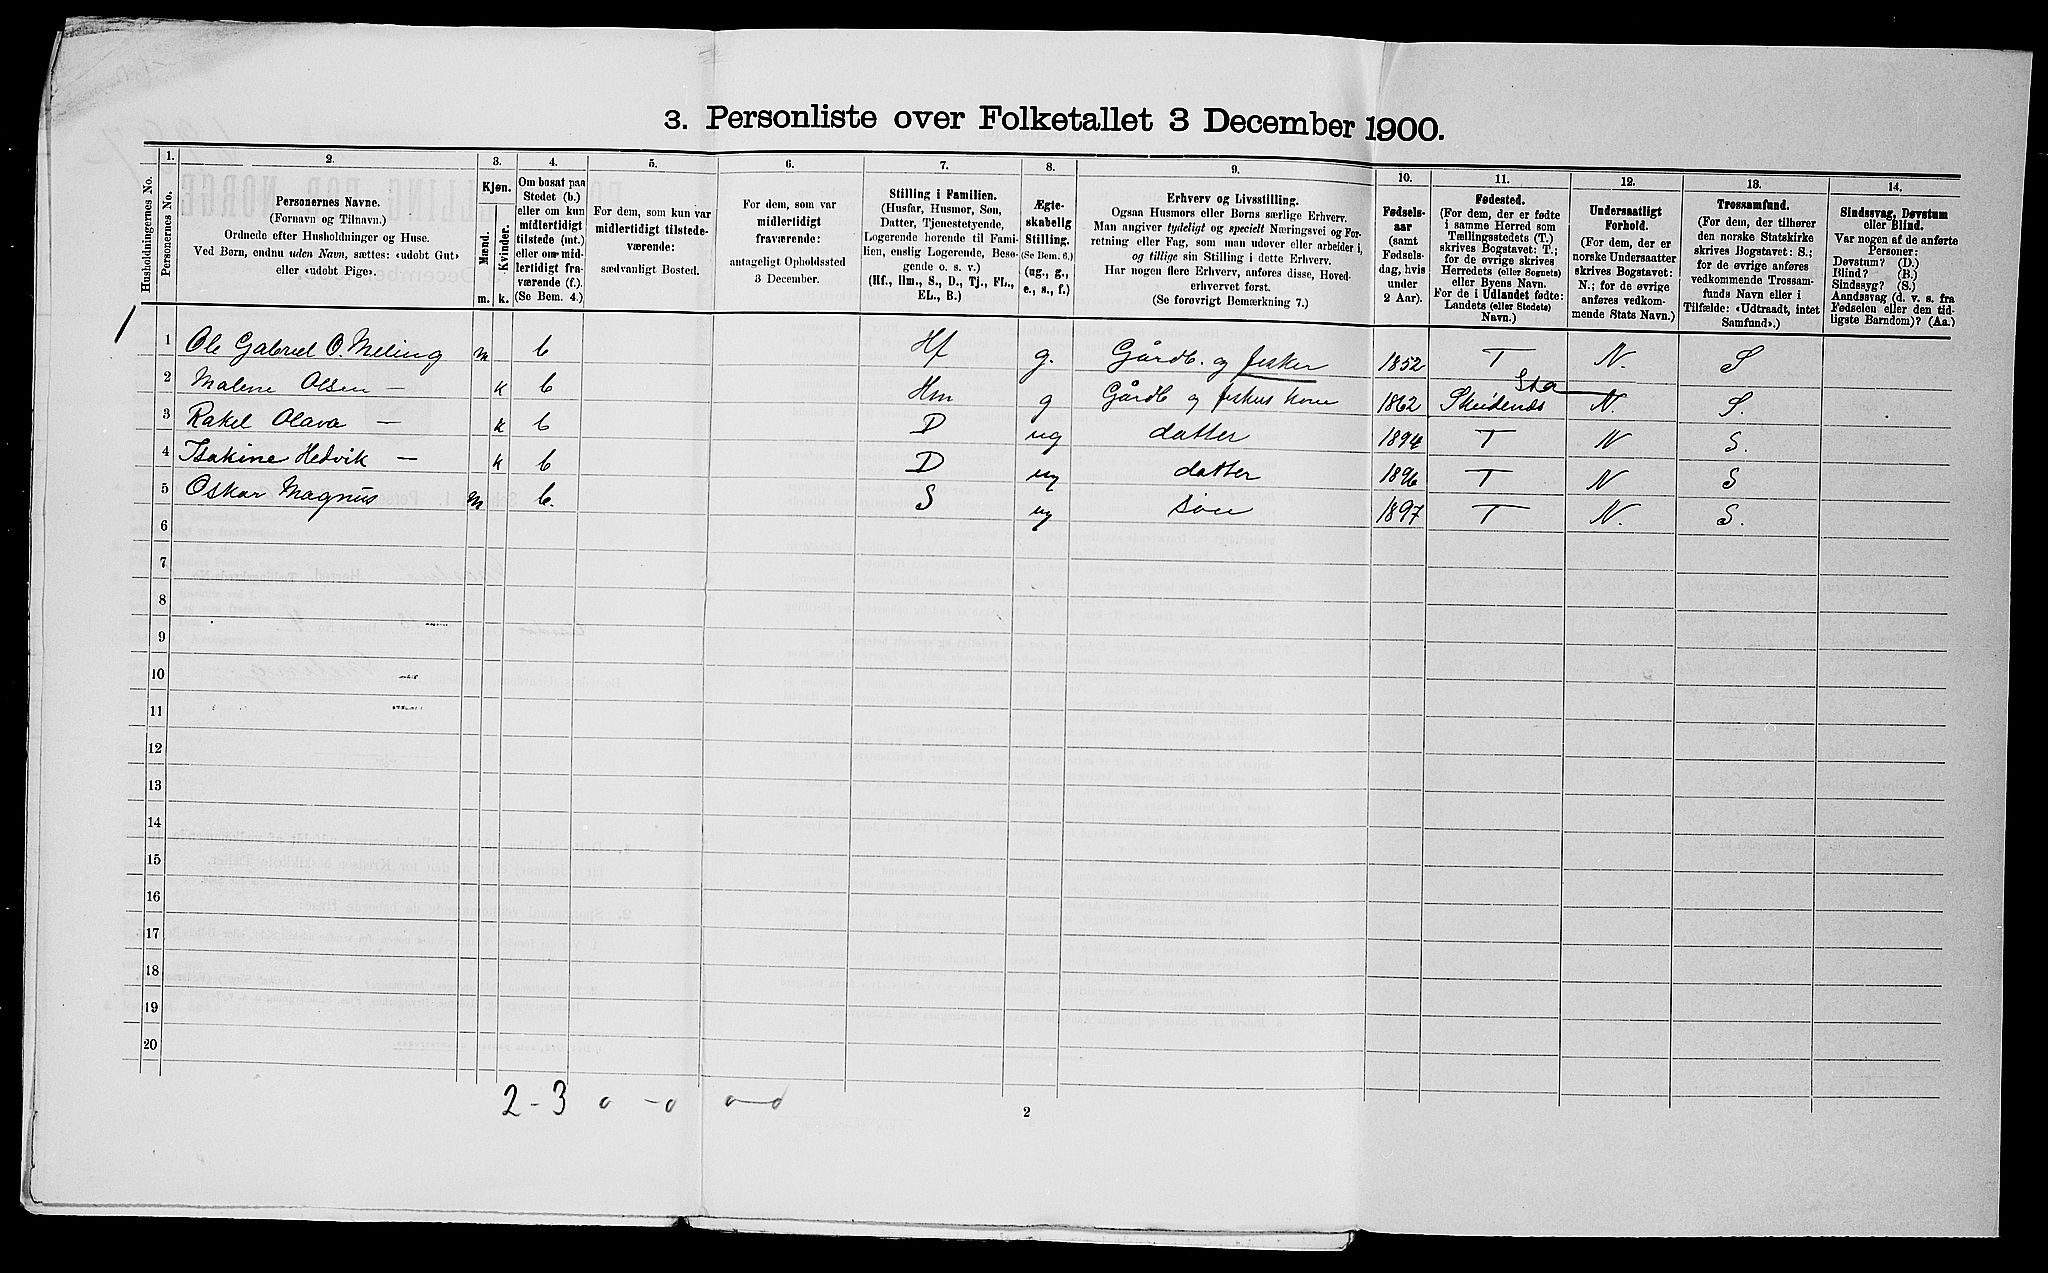 3. Personliste over Folketallet 3 December 1900.
Husholdningernes No.
1.
Personernes No.
2.
Personernes Navne.
(Fornavn og Tilnavn.)
Ordnede efter Husholdninger og Huse.
Ved Børn, endnu uden Navn, sættes: «udøbt Gut»
eller «udøbt Pige».
3.
Kjøn.
Mænd.
Kvinder.
m. k.
4.
Om bosat paa
Stedet (b.)
eller om kun
midlertidigt
tilstede (mt.)
eller om mid-
lertidigt fra-
værende (f.).
(Se Bem. 4.)
5.
For dem, som kun var
midlertidigt tilstede-
værende:
sædvanligt Bosted.
6.
For dem, som var
midlertidigt
fraværende:
antageligt Opholdssted
3 December.
7.
Stilling i Familien.
(Husfar, Husmor, Søn,
Datter, Tjenestetyende,
Logerende hørende til Fami-
lien, enslig Logerende, Besø-
gende o. s. v.)
(Hf., Hm., S., D., Tj., FL.,
EL., B.)
8.
Ægte-
skabelig
Stilling.
(Se Bem. 6.)
(ug., g.,
e., s., f.)
9.
Erhverv og Livsstilling.
Ogsaa Husmors eller Børns særlige Erhverv.
Man angiver tydeligt og specielt Næringsvei og For-
retning eller Fag, som man udøver eller arbeider i,
og tillige sin Stilling i dette Erhverv.
Har nogen flere Erhverv, anføres disse, Hoved-
erhvervet først.
(Se forøvrigt Bemærkning 7.)
10.
Fødsels-
aar
(samt
Fødsels-
dag, hvis
under
2 Aar).
11.
Fødested.
(For dem, der er fødte
i samme Herred som
Tællingsstedets (T.)
skrives Bogstavet: T.;
for de øvrige skrives
Herredets (eller Sognets)
eller Byens Navn.
For de i Udlandet fødte:
Landets (eller Stedets)
Navn.)
12.
Undersaatligt
Forhold.
(For dem, der er
norske Undersaatter
skrives Bogstavet:
N.; for de øvrige
anføres vedkom-
mende Stats Navn.)
13.
Trossamfund.
(For dem, der tilhører
den norske Statskirke
skrives Bogstavet: S.;
for de øvrige anføres
vedkommende Trossam-
funds Navn eller i
Tilfælde: «Udtraadt, intet
Samfund».)
14.
Sindssvag, Døvstum
eller Blind.
Var nogen af de anførte
Personer:
Døvstum? (D.)
Blind? (B.)
Sindssyg? (S.)
Aandssvag (d. v. s. fra
Fødselen eller den tid-
ligste Barndom)? (Aa.)
1 Ole Gabriel O. Meling m b Hf g. Gårdb. og fisker 1852 T N. S
Sta
2 Malene Olsen — k b Hm g Gårdb og fiskers kone 1862 Skeidenæs N. S.
3 Rakel Olava — k b D ug datter 1894 T N S.
4 Isakine Hedvik — k b D ug datter 1896 T N S
5 Oskar Magnus m b. S ug søn 1897 T N. S.
6
7
8
9
10
11
12
13
14
15
16
17
18
19
20
2-3 0 -0 0-0
2